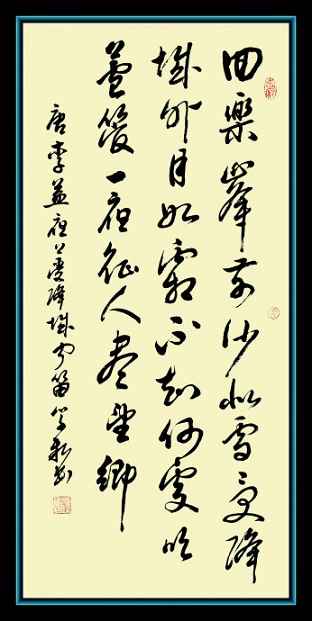 回樂峯前沙似雪受降
城外月如霜不知何處吹
蘆管一夜征人盡望鄉
唐李益夜上受降城聞笛